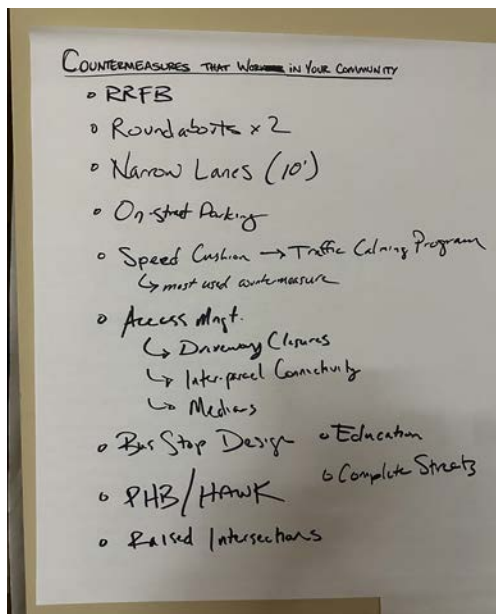 COUNTERMEASURES THAT WORK IN YOUR COMMUNITY
RRFB
Roundabouts x 2
Narrow Lanes (10')
On-street Parking
Speed Cushion → Traffic Calming Program
↳ most used countermeasure
Access Mngt.
↳ Driveway Closures
↳ Inter-parcel Connectivity
↳ Medians
Bus Stop Design
Education
Complete Streets
PHB/HAWK
Raised Intersections